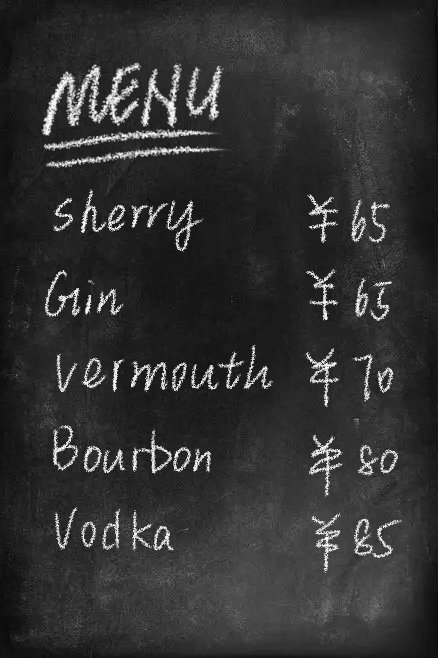 MENU
Sherry ¥65
Gin ¥65
Vermouth ¥70
Bourbon ¥80
Vodka ¥85